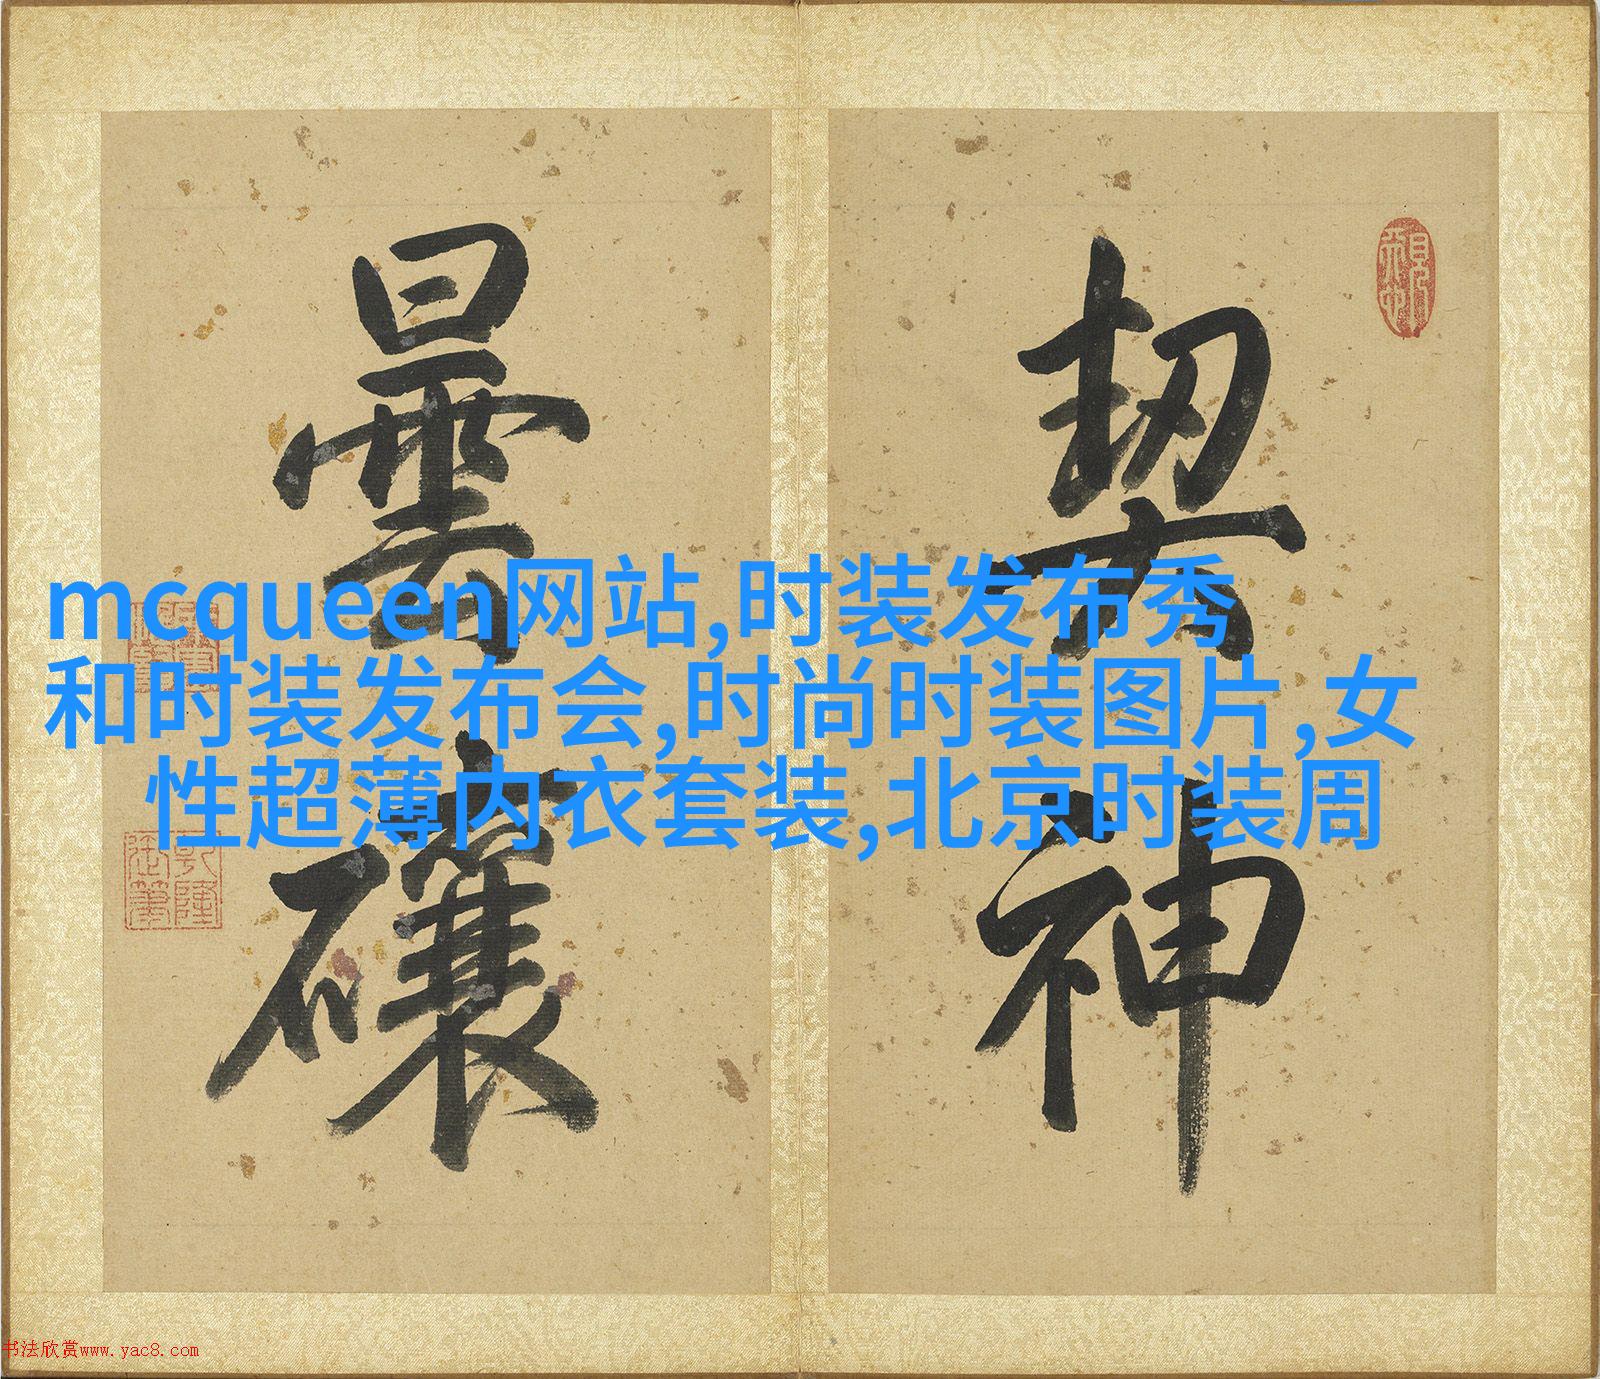 契神
曇
乾隆
御筆
mcqueen网站,时装发布秀
和时装发布会,时尚时装图片,女
性超薄内衣套装,北京时装周
书法欣赏www.yac8.com